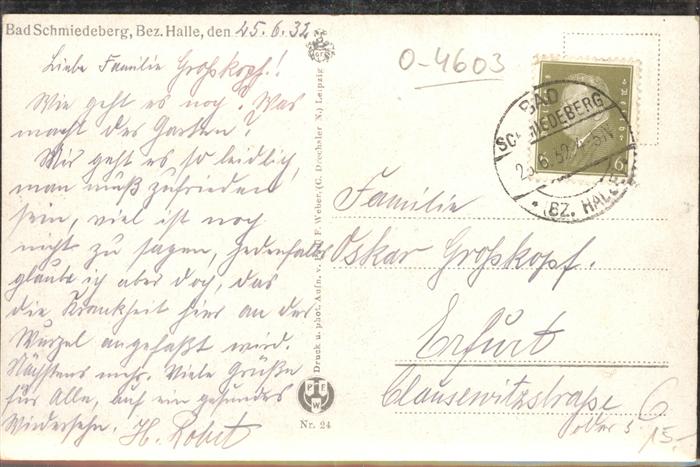 Bad Schmiedeberg, Bez. Halle, den 25.6.32
Liebe Familie Großkopf!!
Wie geht es noch? Was
macht der Garten?
Mir geht es so leidlich,
man muß zufrieden
sein, viel ist noch
nicht zu sagen, jedenfalls
glaube ich aber doch, das
die Krankheit hier an der
Wurzel angefaßt wird.
Nächstens mehr. Viele Grüße
für Alle, auf ein gesundes
Wiedersehn. H.
Druck u. phot. Aufn. v. F. Weber. (G. Drechsler N.) Leipzig
P F W
Nr. 24
O-4603
BAD
SCHMIEDEBERG
(BZ. HALLE)
6
Familie
Oskar Großkopf.
Erfurt
Clausewitzstraße 6
oder 5
15.-